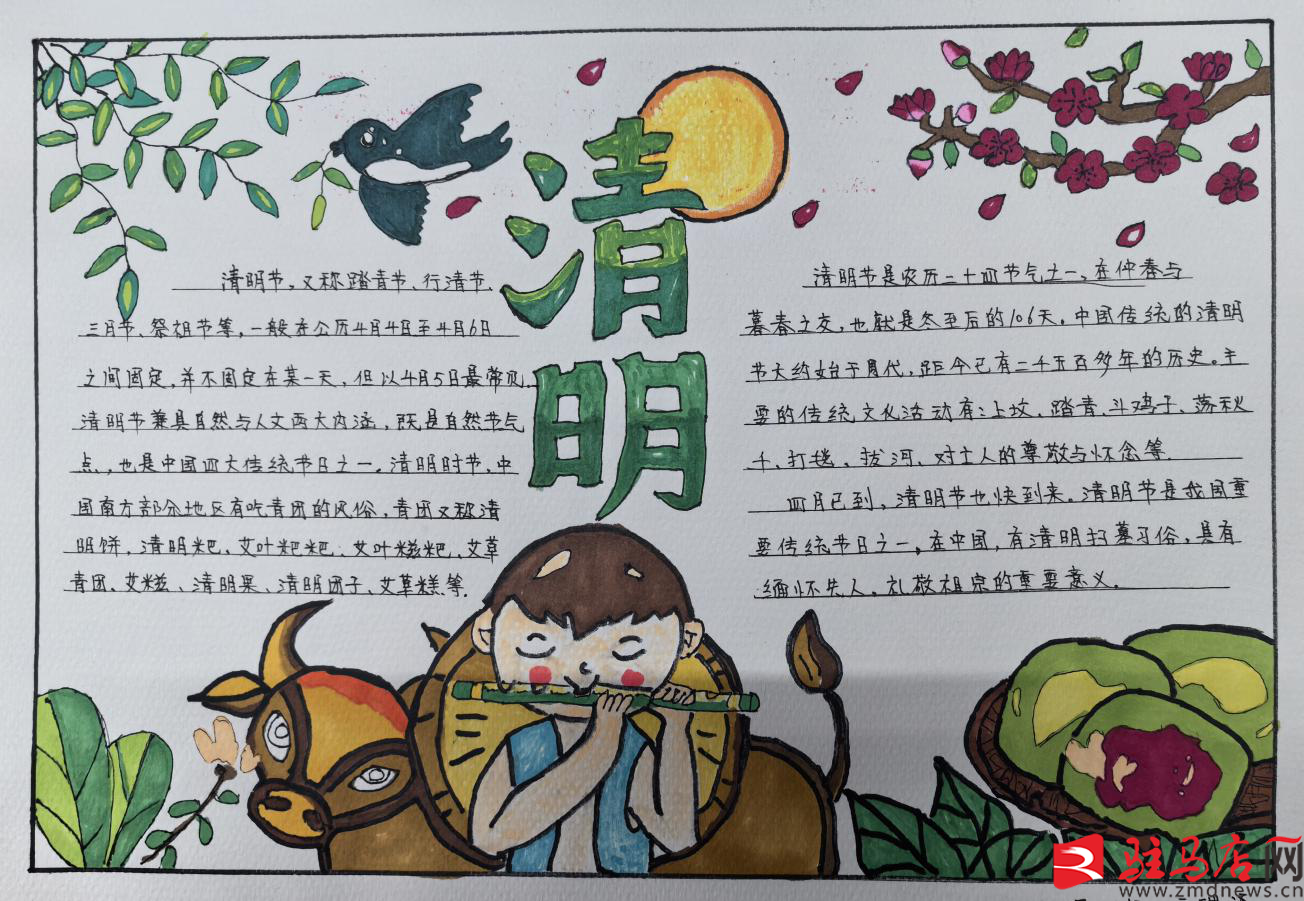 清明
清明节，又称踏青节、行清节、
三月节、祭祖节等，一般在公历4月4日至4月6日
之间固定，并不固定在某一天，但以4月5日最常见。
清明节兼具自然与人文两大内涵，既是自然节气
点，也是中国四大传统节日之一。清明时节，中
国南方部分地区有吃青团的风俗，青团又称清
明饼，清明粑、艾叶粑粑、艾叶糍粑、艾草
青团、艾糍、清明果、清明团子、艾草糕等。
清明节是农历二十四节气之一，在仲春与
暮春之交，也就是冬至后的106天。中国传统的清明
节大约始于周代，距今已有二千五百多年的历史。主
要的传统文化活动有：上坟、踏青、斗鸡子、荡秋
千、打毯、拔河、对士人的尊敬与怀念等.
四月已到，清明节也快到来。清明节是我国重
要传统节日之一。在中国，有清明扫墓习俗，具有
缅怀失人。礼敬祖宗的重要意义.
驻马店网
www.zmdnews.cn